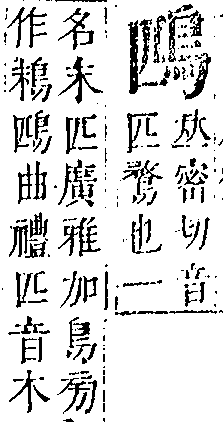 鴄
密切音
匹鶩也一
名末匹廣雅加鳥旁
作鴄曲禮匹音木